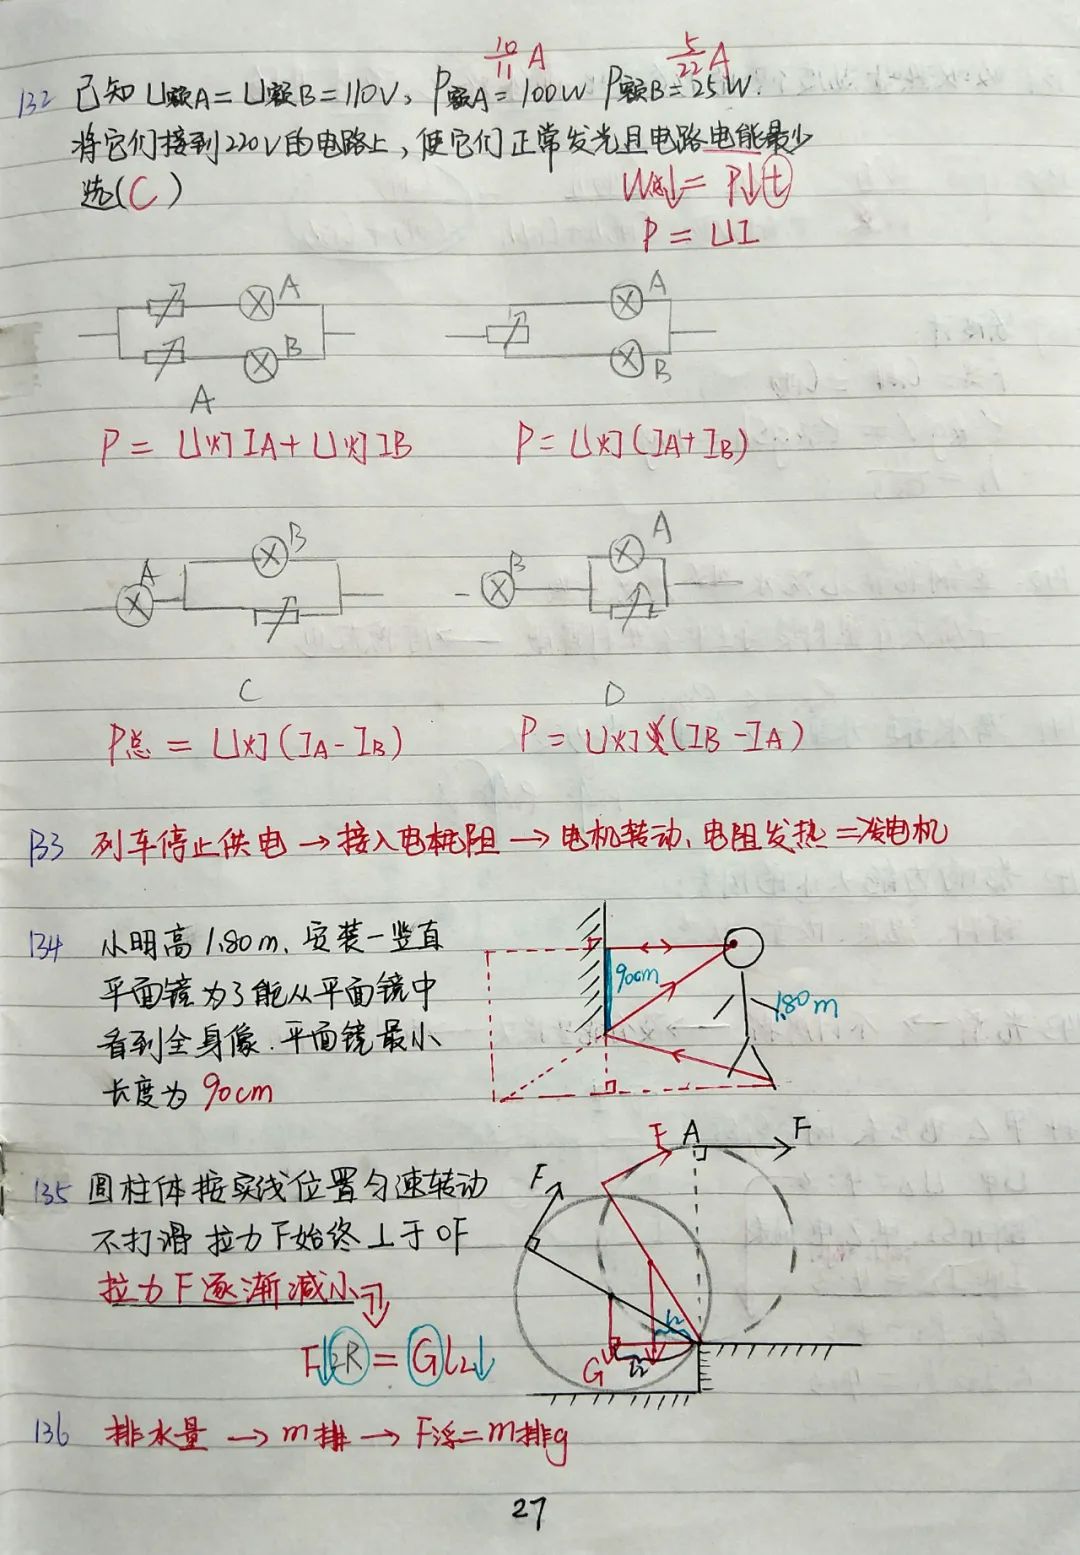 10/11 A 5/22 A
132 已知U额A=U额B=110V, P额A=100W P额B=25W.
将它们接到220V的电路上,使它们正常发光且电路电能最少
选(C)
W总↓=P↓t
P=UI
A
B
A
B
A
P=U灯IA+U灯IB
P=U灯(IA+IB)
A
B
B
A
C
D
P总=U灯(IA-IB)
P=U灯(IB-IA)
133 列车停止供电→接入电阻→电机转动、电阻发热=发电机
134 小明高1.80m.安装一竖直
平面镜为了能从平面镜中
看到全身像.平面镜最小
长度为90cm
90cm
1.80m
135 圆柱体按实线位置匀速转动
不打滑 拉力F始终⊥于OF
拉力F逐渐减小
F↓2R=Gl2↓
F
F
A
F
G
136 排水量→m排→F浮=m排g
27